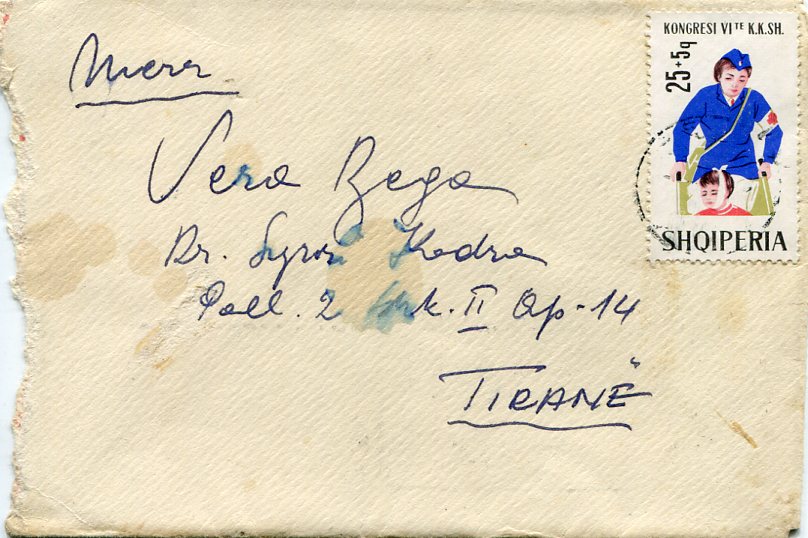 KONGRESI VI TE K.K.SH.
25+5q
SHQIPERIA
Merr
Vera Bega
Rr. Syrri Kodra
Pall. 2 Shk. II Ap-14
TIRANË